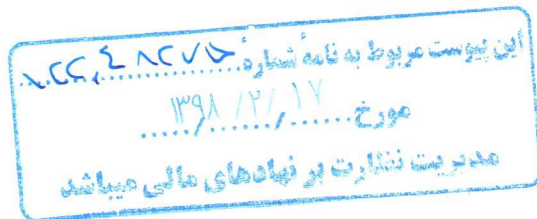 این پیوست مربوط به نامهٔ شماره ۱۲۲/۴۸۲۷۵
مورخ ۱۳۹۸/۲/۱۷
مدیریت نظارت بر نهادهای مالی میباشد